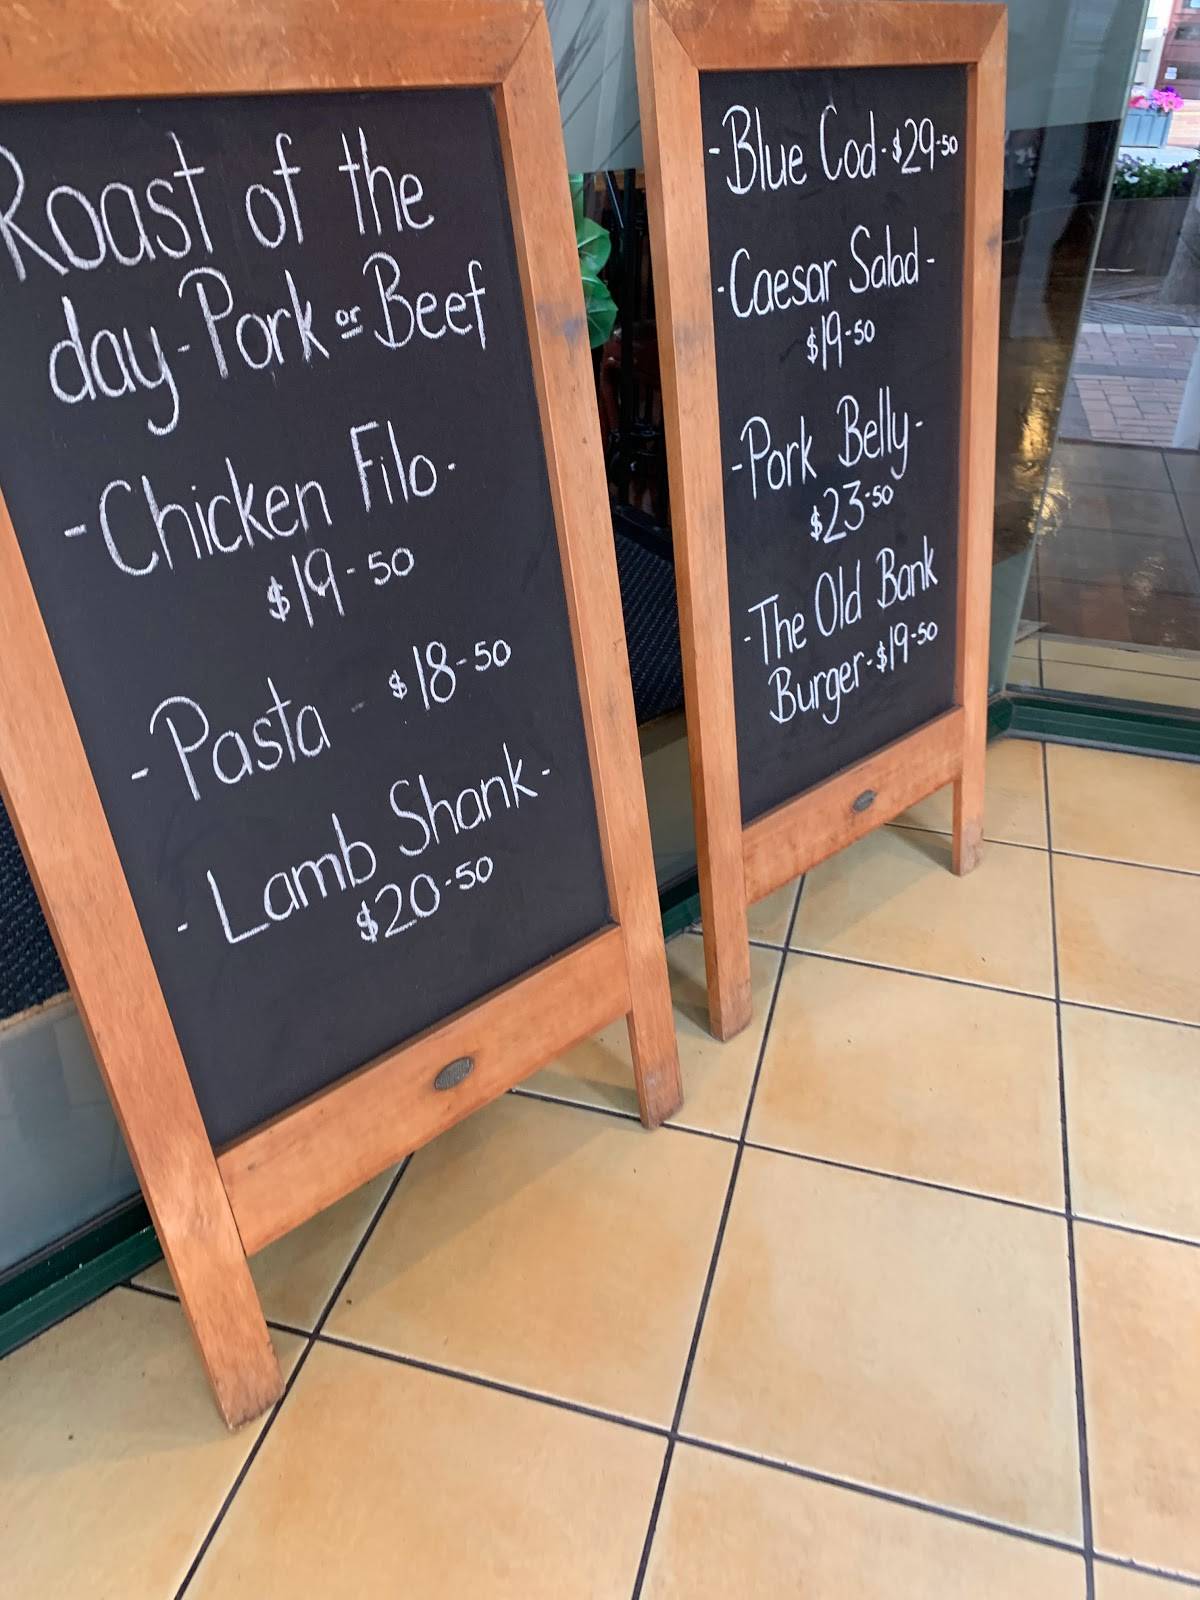 Roast of the
day - Pork or Beef
- Chicken Filo -
$19-50
- Pasta - $18-50
- Lamb Shank -
$20-50
- Blue Cod - $29-50
- Caesar Salad -
$19-50
- Pork Belly -
$23-50
- The Old Bank
Burger - $19-50